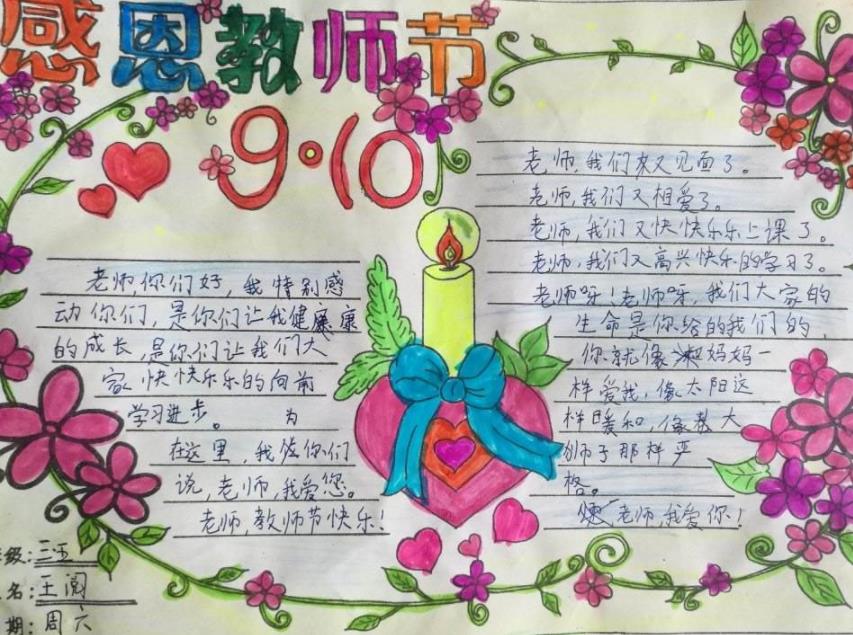 感恩教师节
9·10
老师,你们好,我特别感
动你们,是你们让我健康康
的成长,是你们让我们大
家快快乐乐的向前
学习进步。 为
在这里,我给你们
说,老师,我爱您。
老师,教师节快乐!
老师,我们来又见面了。
老师,我们又相爱了。
老师,我们又快快乐乐上课了。
老师,我们又高兴快乐的学习了。
老师呀!老师呀,我们大家的
生命是你给的我们的,
你就像妈妈一
样爱我,像太阳这
样日暖和,像教大
师子那样严
格。
老师,我爱你!
级:三
名:王阅
期:周六